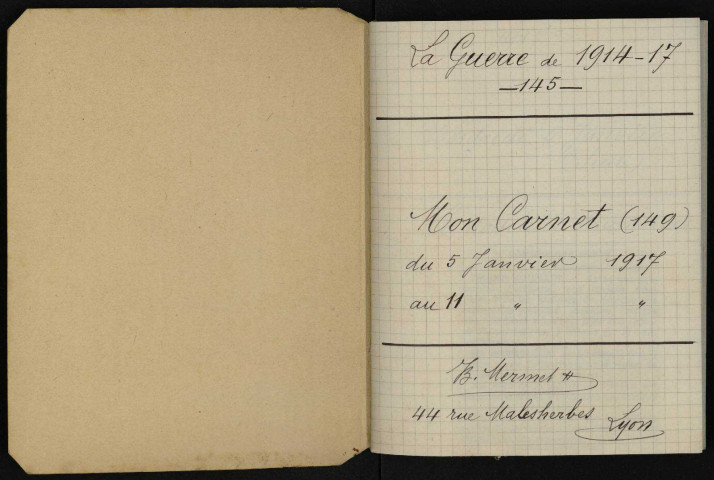 La Guerre de 1914-17
—145—
Mon Carnet (149)
du 5 Janvier 1917
au 11 " "
B. Mermet
44 rue Malesherbes
Lyon